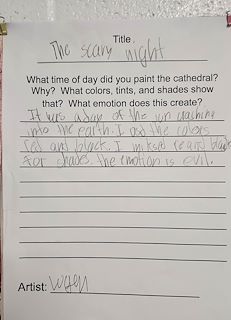 Title
The scary night
What time of day did you paint the cathedral?
Why? What colors, tints, and shades show
that? What emotion does this create?
It was a day of the sun crashing
into the earth. I usd the colors
red and black. I miksed re and black
for shades. the emotion is evil.
Artist: